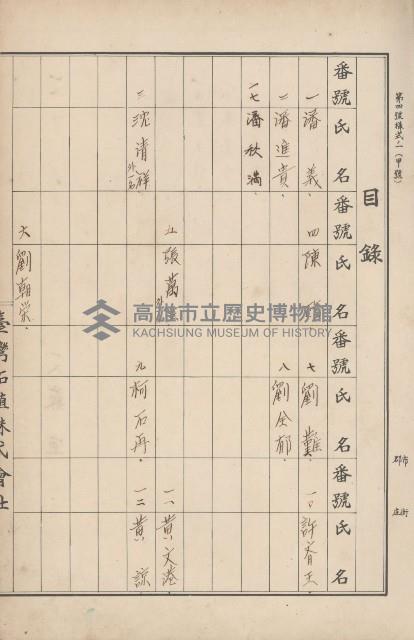 第四號樣式ノ一(甲號)
目錄
番號 氏名 番號 氏名 番號 氏名 番號 氏名
一 潘義
四 陳
七 劉難
二 潘進貴
八 劉全郁
一七 潘秋滿
五 張萬
一一 黃文港
三 沈清祥 外一名
九 柯石再
一二 黃諒
六 劉朝榮
市
郡
街
庄
臺灣石殖株式會社
高雄市立歷史博物館
KAOHSIUNG MUSEUM OF HISTORY